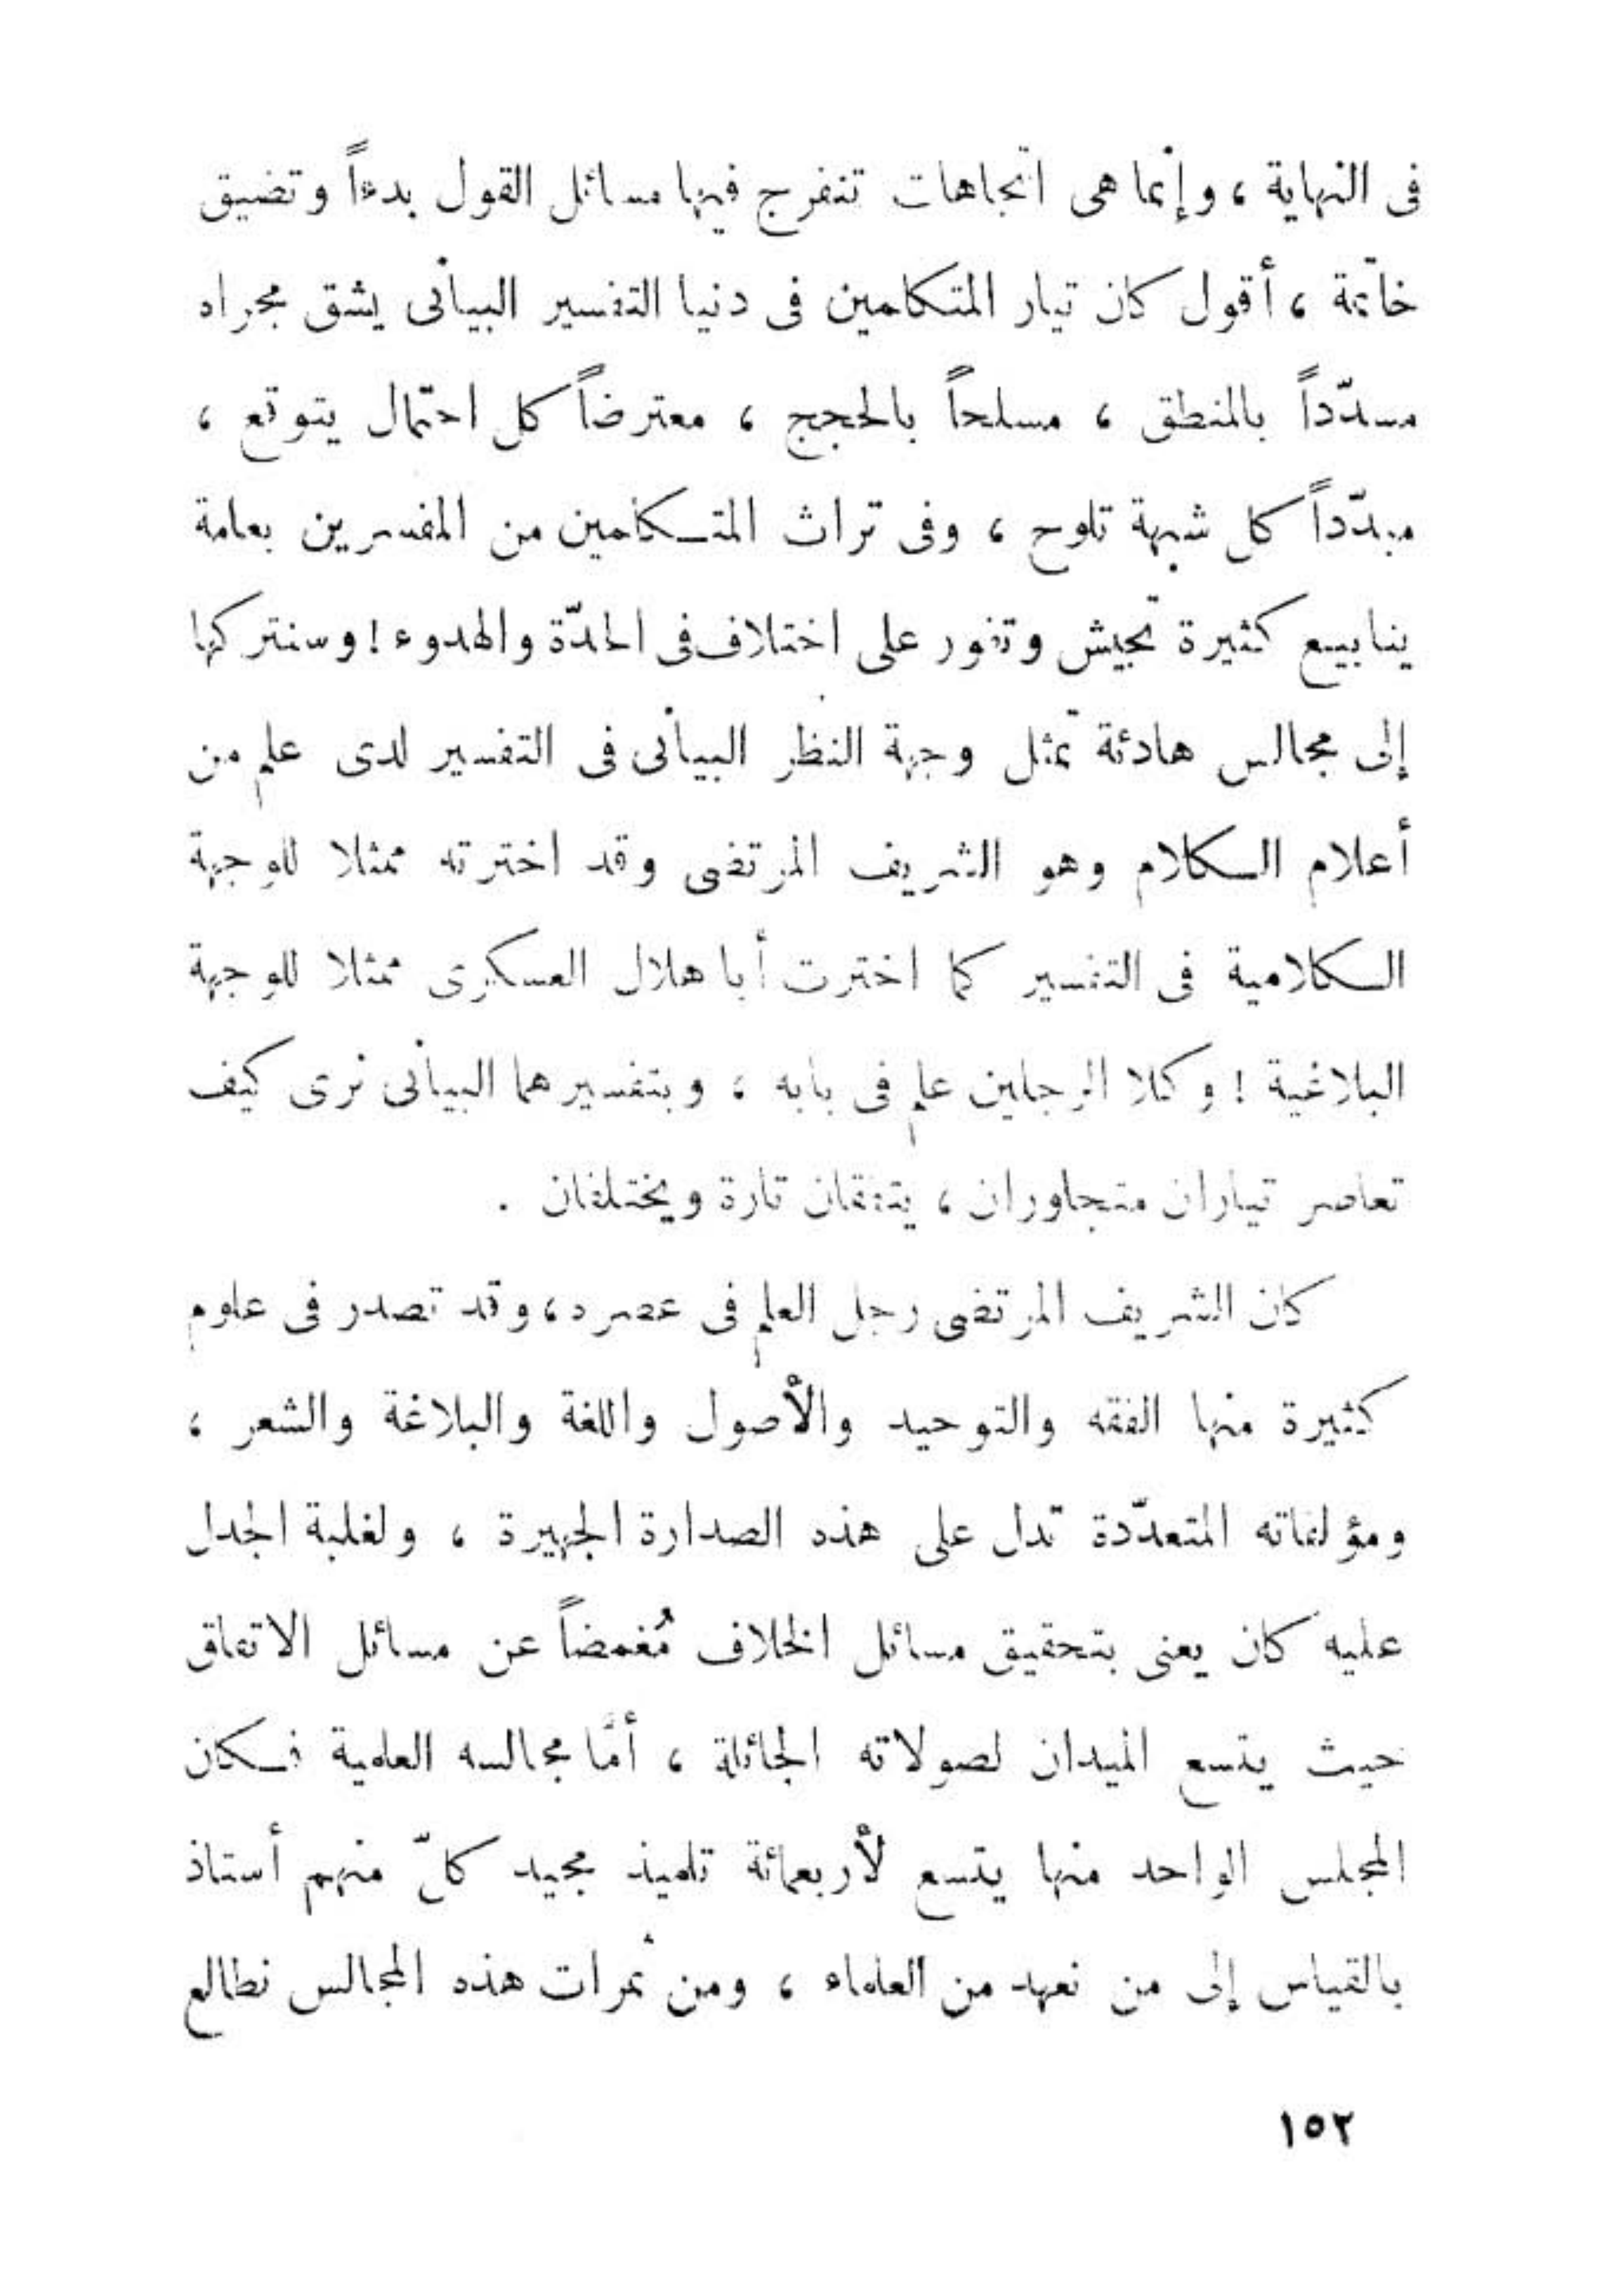 فى النهاية ، وإنما هى اتجاهات تنفرج فيها مسائل القول بدءاً وتضيق
خاتمة ، أقول كان تيار المتكلمين فى دنيا التفسير البيانى يشق مجراه
مسدّداً بالمنطق ، مسلحاً بالحجج ، معترضاً كل احتمال يتوقع ،
مبدّداً كل شبهة تلوح ، وفى تراث المتكلمين من المفسرين بعامة
ينابيع كثيرة تجيش وتفور على اختلاف فى الحدّة والهدوء ! وسنتركها
إلى مجالس هادئة تمثل وجهة النظر البيانى فى التفسير لدى علم من
أعلام الكلام وهو الشريف المرتضى وقد اخترته ممثلا للوجهة
الكلامية فى التفسير كما اخترت أبا هلال العسكرى ممثلا للوجهة
البلاغية ! وكلا الرجلين علم فى بابه ، وبتفسيرهما البيانى نرى كيف
تعاصر تياران متجاوران ، يتفقان تارة ويختلفان .
كان الشريف المرتضى رجل العلم فى عصره ، وقد تصدر فى علوم
كثيرة منها الفقه والتوحيد والأصول واللغة والبلاغة والشعر ،
ومؤلفاته المتعدّدة تدل على هذه الصدارة الجهيرة ، ولغلبة الجدل
عليه كان يعنى بتحقيق مسائل الخلاف مُغمضاً عن مسائل الاتفاق
حيث يتسع الميدان لصولاته الجائلة ، أمَّا مجالسه العلمية فكان
المجلس الواحد منها يتسع لأربعمائة تلميذ مجيد كلّ منهم أستاذ
بالقياس إلى من نعهد من العلماء ، ومن ثمرات هذه المجالس نطالع
١٥٢